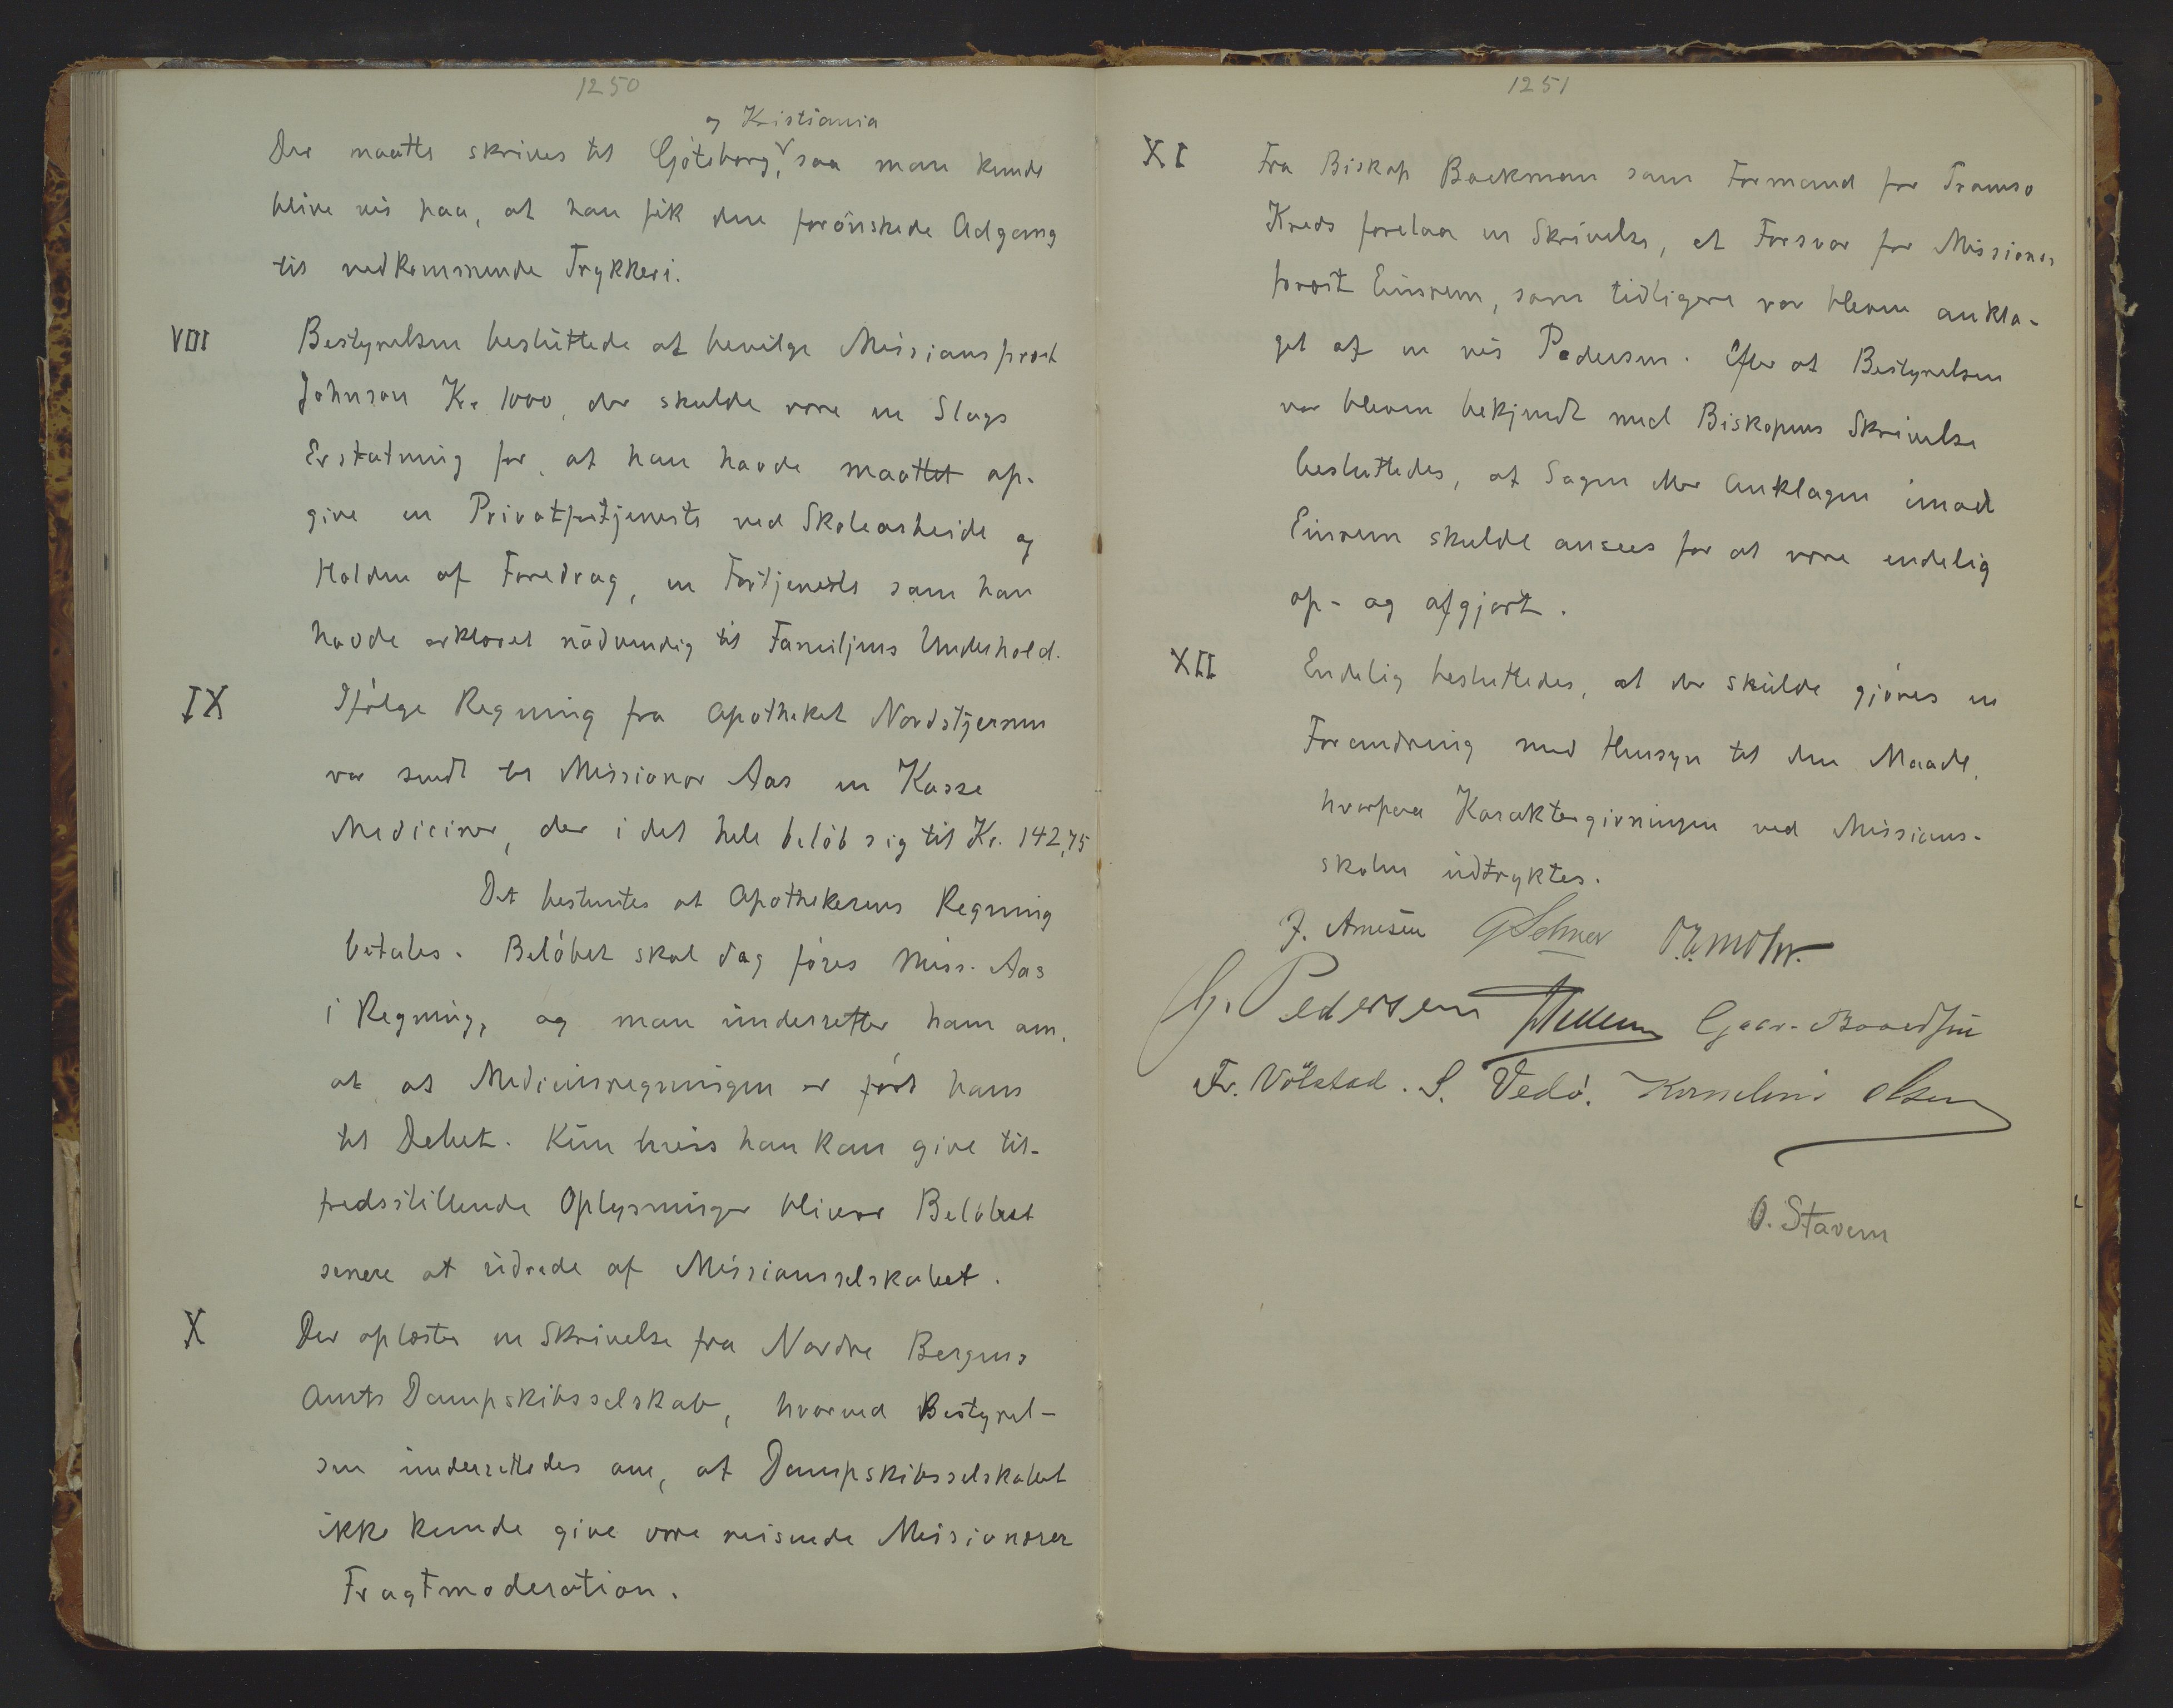 1250
og Kristiania
Der maatte skrives til Göteborg, saa man kunde
blive vis paa, at han fik den forönskede Adgang
til vedkommende Trykkeri.
VIII Bestyrelsen besluttede at bevilge Missionsprost
Johnson Kr. 1000, der skulde være en Slags
Erstatning for, at han havde maattet op-
give en Privatfortjeneste ved Skolearbeide og
Holden af Foredrag, en Fortjeneste som han
havde erklæret nödvendig til Familjens Underhold.
IX Ifölge Regning fra Apotheket Nordstjernen
var sendt til Missionær Aas en Kasse
Mediciner, der i det hele belöb sig til Kr. 142,75
Det bestemtes at Apothekerens Regning
betales. Belöbet skal dog föres Miss. Aas
i Regning, og man underretter ham om,
at at Medicinregningen er fört hans
til Debet. Kun hviss han kan give til-
fredsstillende Oplysninger bliver Belöbet
senere at udrede af Missionsselskabet.
X Der oplæstes en Skrivelse fra Nordre Bergens
Amts Dampskibsselskab, hvorved Bestyrel-
sen underrettedes om, at Dampskibsselskabet
ikke kunde give vore reisende Missionærer
Fragtmoderation.
1251
XI Fra Biskop Bøckman som Formand for Tromsø
Kreds forelaa en Skrivelse, et Forsvar for Missions
prost Einrem, som tidligere var bleven ankla-
get af en vis Pedersen. Efter at Bestyrelsen
var bleven bekjendt med Biskopens Skrivelse
besluttedes, at Sagen eller Anklagen imod
Einrem skulde ansees for at være endelig
op- og afgjort.
XII Endelig besluttedes, at der skulde gjöres en
Forandring med Hensyn til den Maade,
hvorpaa Karaktergivningen ved Missions-
skolen udtryktes.
J. Arnesen O. E. Mohr.
G. Pedersen
Fr. Völstad. S. Vedö. Kornelius Olsen
O. Stavem